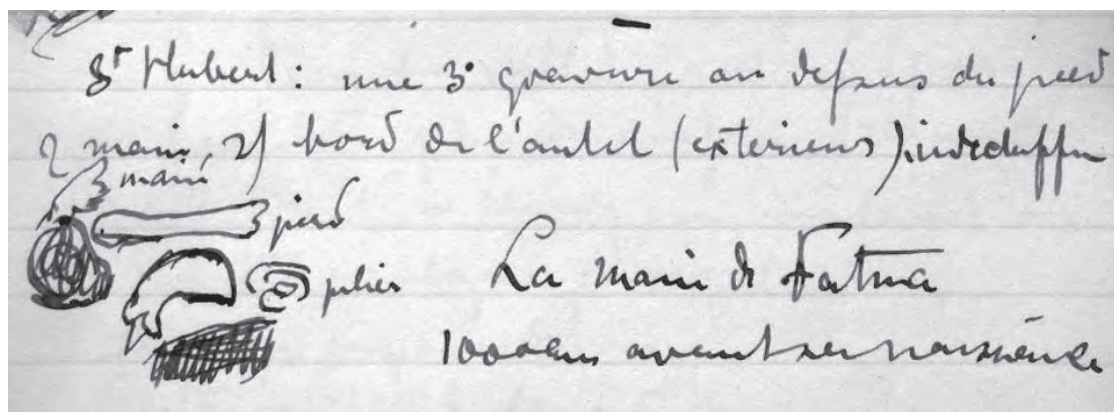 St Hubert : une 3e gravure au dessus du pied
2 main, 2) bord de l'autel (extérieur).
main
pied
pilier
La main de Fatma
1000 ans avant sa naissance